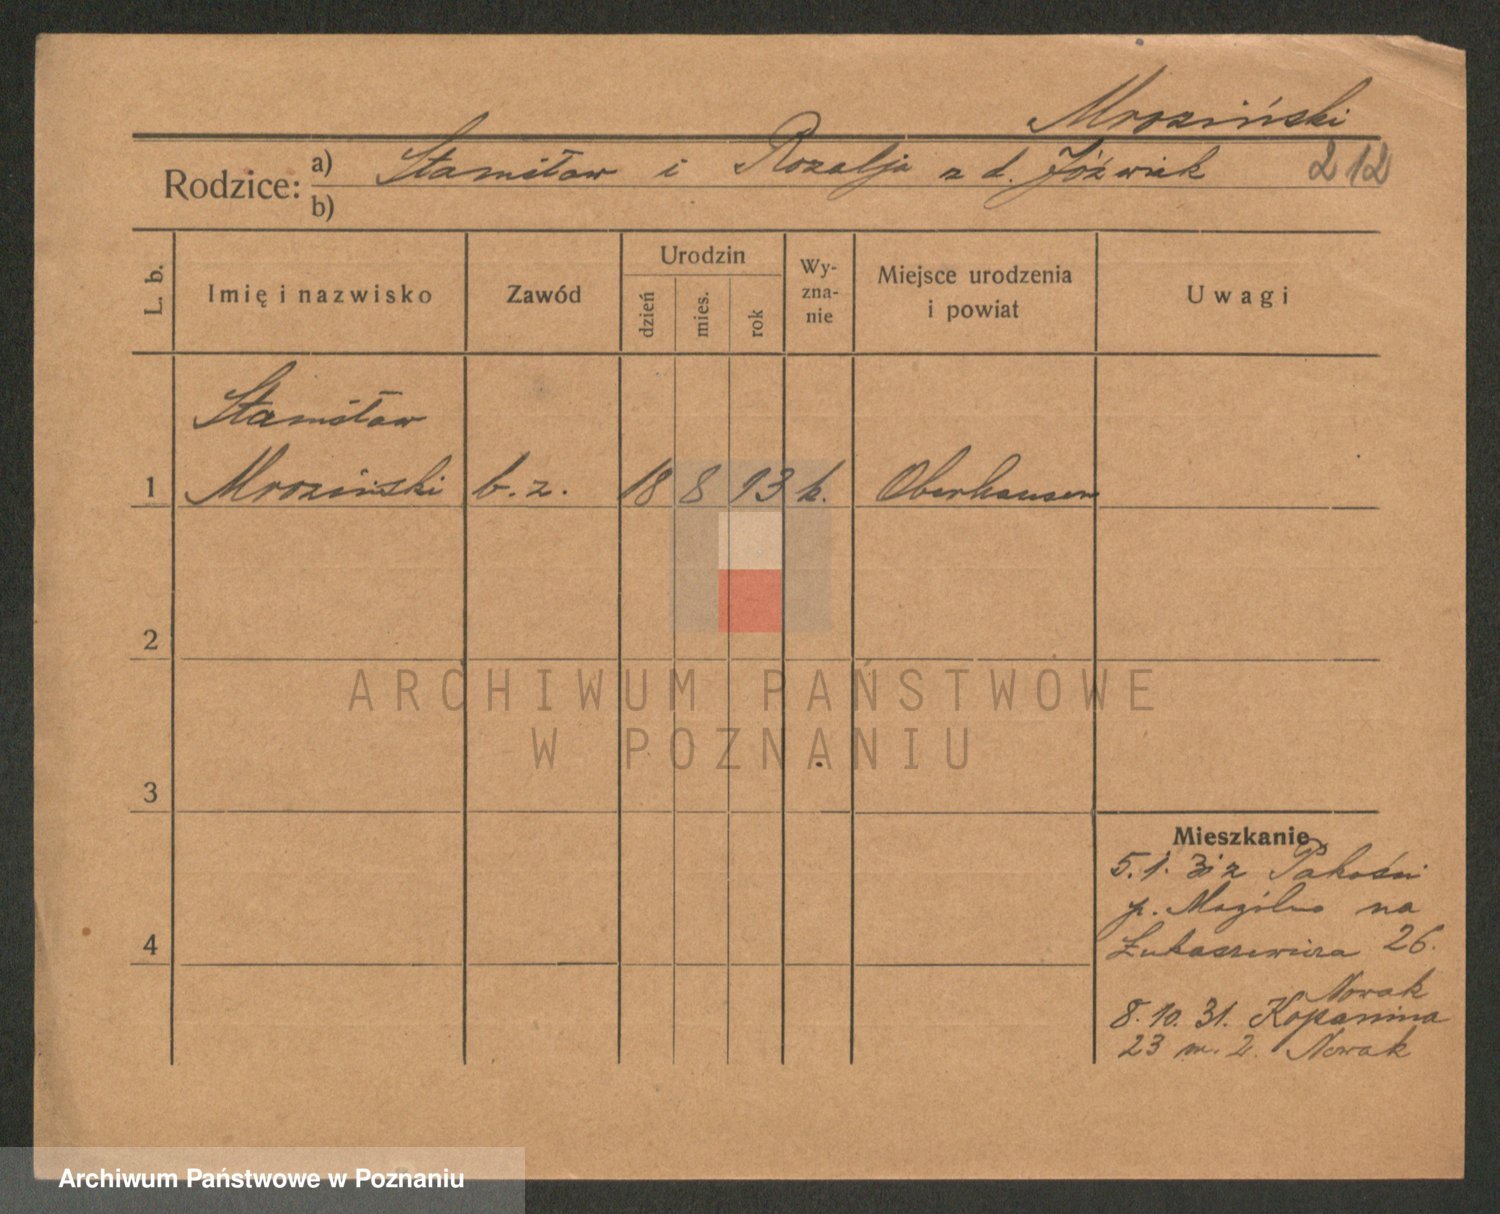 Mroziński
Rodzice: a) Stanisław i Rozalja z d. Jóźwiak 212
b)
L. b. Imię i nazwisko Zawód Urodzin dzień mies. rok Wy-zna-nie Miejsce urodzenia i powiat Uwagi
Stanisław
1 Mroziński b. z. 18 8 13 k. Oberhausen
2
ARCHIWUM PAŃSTWOWE
W POZNANIU
3
Mieszkanie
5. 1. 31 z Pakości
p. Mogilno na
4 Łukaszewicza 26.
Nowak
8. 10. 31. Kopanina
23 m. 2. Nowak
Archiwum Państwowe w Poznaniu